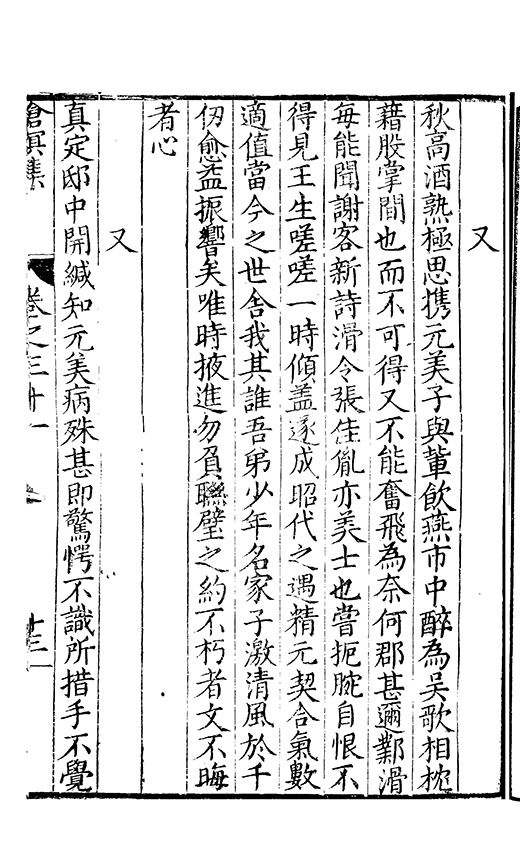 又
秋高酒熟極思携元美子與輩飲燕市中醉為吴歌相枕
藉股掌間也而不可得又不能奮飛為奈何郡甚邇鄴滑
每能聞謝客新詩滑令張佳胤亦美士也嘗扼腕自恨不
得見王生嗟嗟一時傾盖遂成昭代之遇精元契合氣數
適值當今之世舍我其誰吾弟少年名家子激清風於千
仭愈益振響矣唯時掖進勿負聯璧之約不朽者文不晦
者心
又
真定邸中開緘知元美病殊甚即驚愕不識所措手不覺
滄溟集 卷之三十一 十三